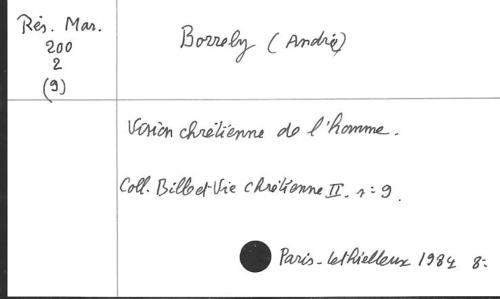 Rés. Mar.
200
2
(9)
Borrely (André)
Vision chrétienne de l'homme.
Coll. Bible et Vie chrétienne II. n: 9.
Paris - Lethielleux 1984 8: